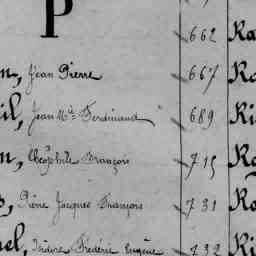 P
662 Ra
n, Jean Pierre 667 Ro
il, Jean M.ie Ferdinand 689 Ri
n, Théophile François 715 Ro
s, Pierre Jacques François 731 Ro
el, Isidore Frédéric Eugène 732 Ri